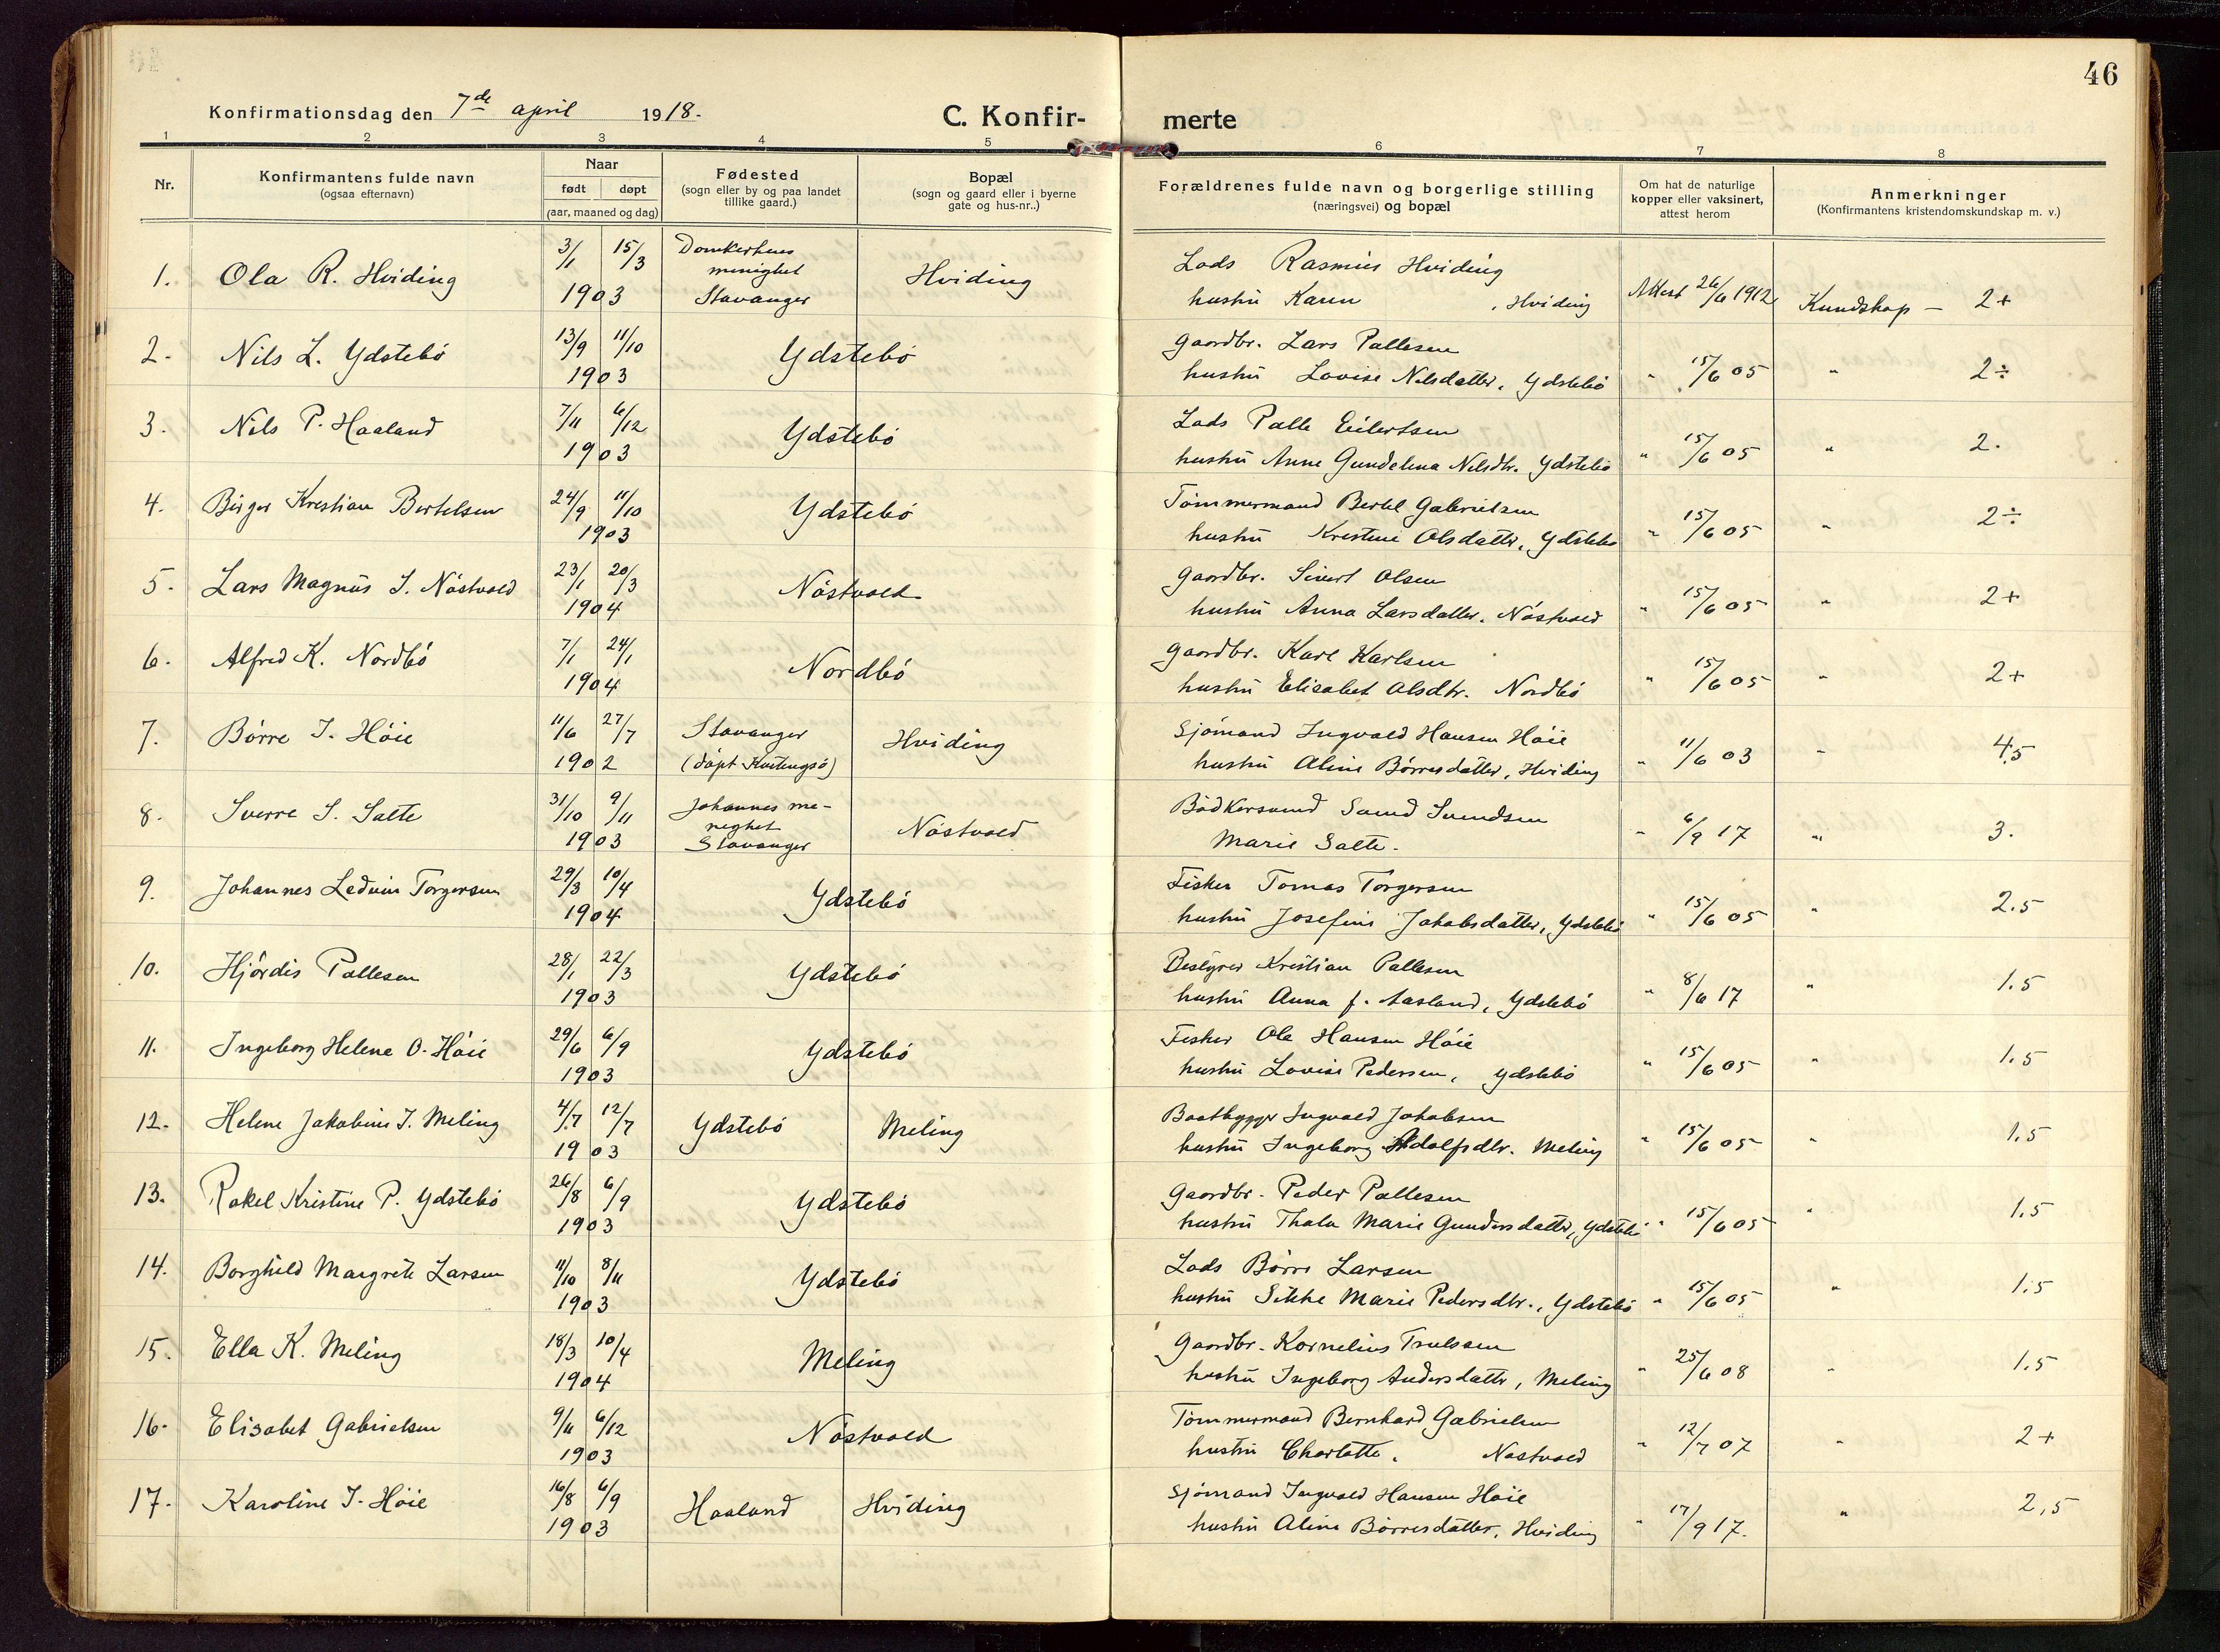 Konfirmationsdag den 7de april 1918. C. Konfir- merte 46
1 2 3 4 5 6 7 8
Nr. Konfirmantens fulde navn (ogsaa efternavn) Naar født døpt (aar, maaned og dag) Fødested (sogn eller by og paa landet tillike gaard.) Bopæl (sogn og gaard eller i byerne gate og hus-nr..) Forældrenes fulde navn og borgerlige stilling (næringsvei) og bopæl Om hat de naturlige kopper eller vaksinert, attest herom Anmerkninger (Konfirmantens kristendomskundskap m. v.)
1. Ola R. Hviding 3/1 15/3 1903 Domkirkens menighet Stavanger Hviding Lods Rasmus Hviding
hustru Karen , Hviding Attest 26/6 1912 Kundskap — 2+
2. Nils L. Ydstebö 13/9 11/10 1903 Ydstebö Gaardbr. Lars Pallesen
hustru Lovise Nilsdatter, Ydstebö " 15/6 05 " 2÷
3. Nils P. Haaland 7/11 6/12 1903 Ydstebö Lods Palle Eilertsen
hustru Anne Gundelena Nilsdtr. Ydstebö " 15/6 05 " 2.
4. Birger Kristian Bertelsen 24/9 11/10 1903 Ydstebö Tömmermand Bertel Gabrielsen
hustru Kristine Olsdatter, Ydstebö " 15/6 05 " 2÷
5. Lars Magnus S. Nöstvold 23/1 20/3 1904 Nöstvold Gaardbr. Sivert Olsen
hustru Anna Larsdatter. Nöstvold " 15/6 05 " 2+
6. Alfred K. Nordbö 7/1 24/1 1904 Nordbö Gaardbr. Karl Karlsen
hustru Elisabet Olsdtr. Nordbö " 15/6 05 " 2+
7. Börre I. Höie 11/6 27/7 1902 Stavanger (döpt Kvitingsö) Hviding Sjömand Ingvald Hansen Höie
hustru Aline Börresdatter, Hviding " 11/6 03 " 4,5
8. Sverre S. Salte 31/10 9/11 1903 Johannes me- nighet Stavanger Nöstvold Bödkersvend Svend Svendsen
Marie Salte. " 6/9 17 " 3.
9. Johannes Ledvin Torgersen 29/3 10/4 1904 Ydstebö Fisker Tomas Torgersen
hustru Josefine Jakobsdatter, Ydstebö " 15/6 05 " 2.5
10. Hjördis Pallesen 28/1 22/3 1903 Ydstebö Bestyrer Kristian Pallesen
hustru Anna f. Aasland, Ydstebö " 8/6 17 " 1.5
11. Ingeborg Helene O. Höie 29/6 6/9 1903 Ydstebö Fisker Ole Hansen Höie
hustru Lovise Pedersen, Ydstebö " 15/6 05 " 1.5
12. Helene Jakobine I. Meling 4/7 12/7 1903 Ydstebö Meling Baatbygger Ingvald Jakobsen
hustru Ingeborg Adolfsdtr. Meling " 15/6 05 " 1.5
13. Rakel Kristine P. Ydstebö 26/8 6/9 1903 Ydstebö Gaardbr. Peder Pallesen
hustru Thala Marie Gundersdatter, Ydstebö " 15/6 05 " 1.5
14. Borghild Margrete Larsen 11/10 8/11 1903 Ydstebö Lods Börre Larsen
hustru Sikke Marie Pedersdtr., Ydstebö " 15/6 05 " 1.5
15. Ella K. Meling 18/3 10/4 1904 Meling Gaardbr. Kornelius Trulssen
hustru Ingeborg Andersdatter, Meling " 25/6 08 " 1.5
16. Elisabet Gabrielsen 9/11 6/12 1903 Nöstvold Tömmermand Bernhard Gabrielsen
hustru Charlotte. Nöstvold " 12/7 07 " 2+
17. Karoline I. Höie 16/8 6/9 1903 Haaland Hviding Sjömand Ingvald Hansen Höie
hustru Aline Börresdatter, Hviding " 17/9 17. " 2,5